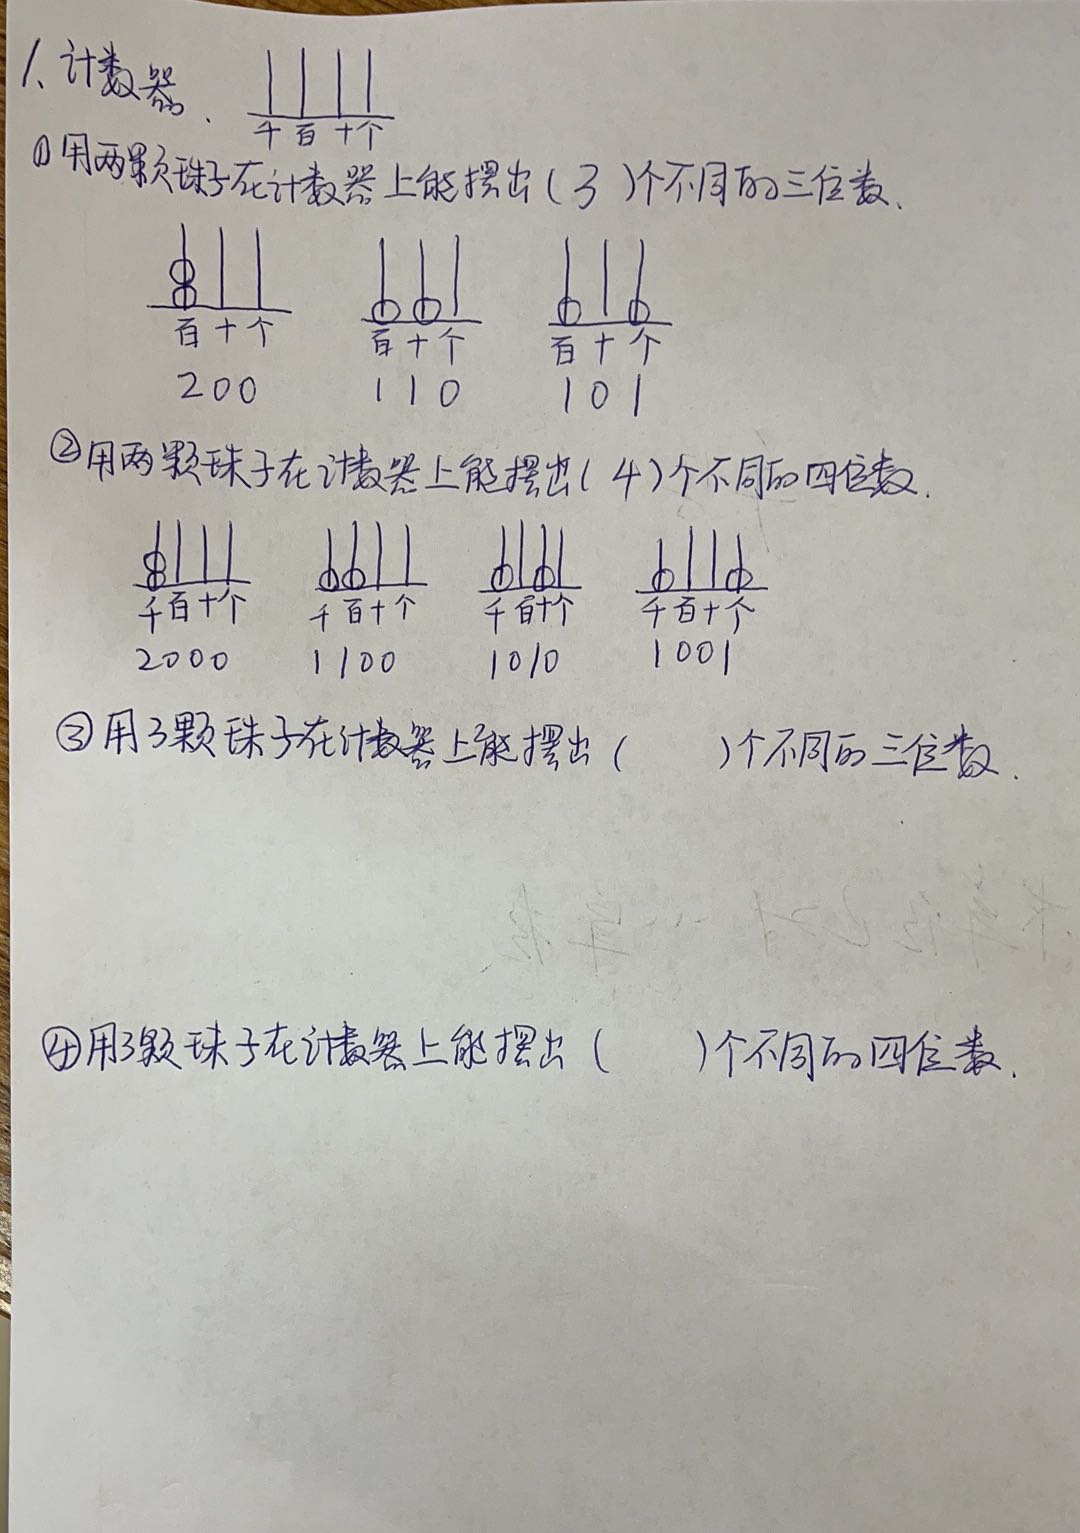 1、计数器、
千 百 十 个
①用两颗珠子在计数器上能摆出(3)个不同的三位数.
百 十 个 百 十 个 百 十 个
200 110 101
②用两颗珠子在计数器上能摆出(4)个不同的四位数.
千 百 十 个 千 百 十 个 千 百 十 个 千 百 十 个
2000 1100 1010 1001
③用3颗珠子在计数器上能摆出( )个不同的三位数.
④用3颗珠子在计数器上能摆出( )个不同的四位数.